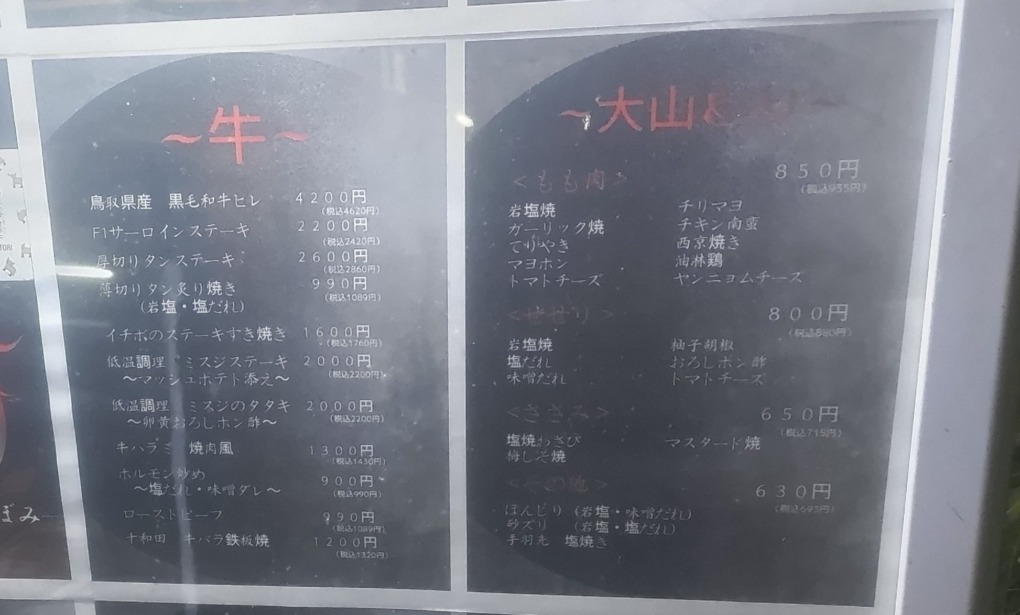 〜牛〜
鳥取県産 黒毛和牛ヒレ 4200円
(税込4620円)
F1サーロインステーキ 2200円
(税込2420円)
厚切りタンステーキ 2600円
(税込2860円)
薄切りタン炙り焼き 990円
(税込1089円)
(岩塩・塩だれ)
イチボのステーキすき焼き 1600円
(税込1760円)
低温調理 ミスジステーキ 2000円
(税込2200円)
〜マッシュポテト添え〜
低温調理 ミスジのタタキ 2000円
(税込2200円)
〜卵黄おろしポン酢〜
牛ハラミ 焼肉風 1300円
(税込1430円)
ホルモン炒め 900円
(税込990円)
〜塩だれ・味噌ダレ〜
ローストビーフ 990円
(税込1089円)
十和田 牛バラ鉄板焼 1200円
(税込1320円)
〜大山
<もも肉> 850円
(税込935円)
岩塩焼 チリマヨ
ガーリック焼 チキン南蛮
てりやき 西京焼き
マヨポン 油林鶏
トマトチーズ ヤンニョムチーズ
<せせり> 800円
(税込880円)
岩塩焼 柚子胡椒
塩だれ おろしポン酢
味噌だれ トマトチーズ
<ささみ> 650円
(税込715円)
塩焼わさび マスタード焼
梅しそ焼
<その他> 630円
(税込693円)
ぼんじり (岩塩・味噌だれ)
砂ズリ (岩塩・塩だれ)
手羽先 塩焼き
ぼみ